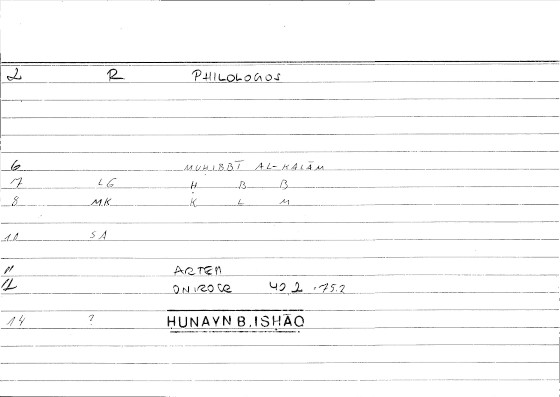 2 R PHILOLOGOS
6 MUḤIBBĪ AL-KALĀM
7 LG Ḥ B B
8 MK K L M
10 SA
11 ARTEM
12 ONIROCR 42,2 175.2
14 ? HUNAYN B. ISHĀQ